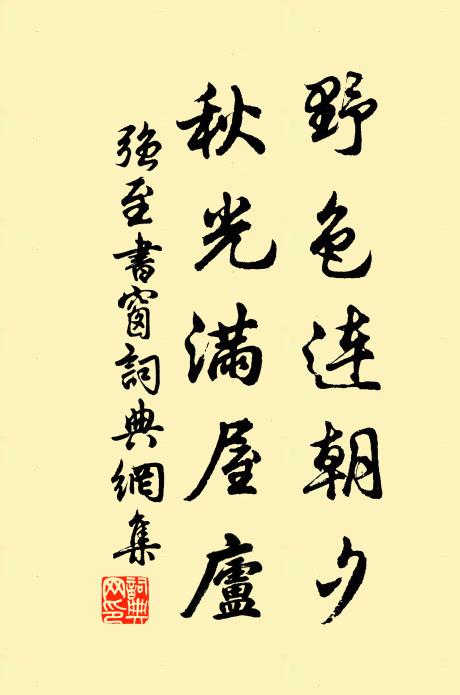 野色連朝夕
秋光滿屋廬
強至書窗詞典網集
詞典网印